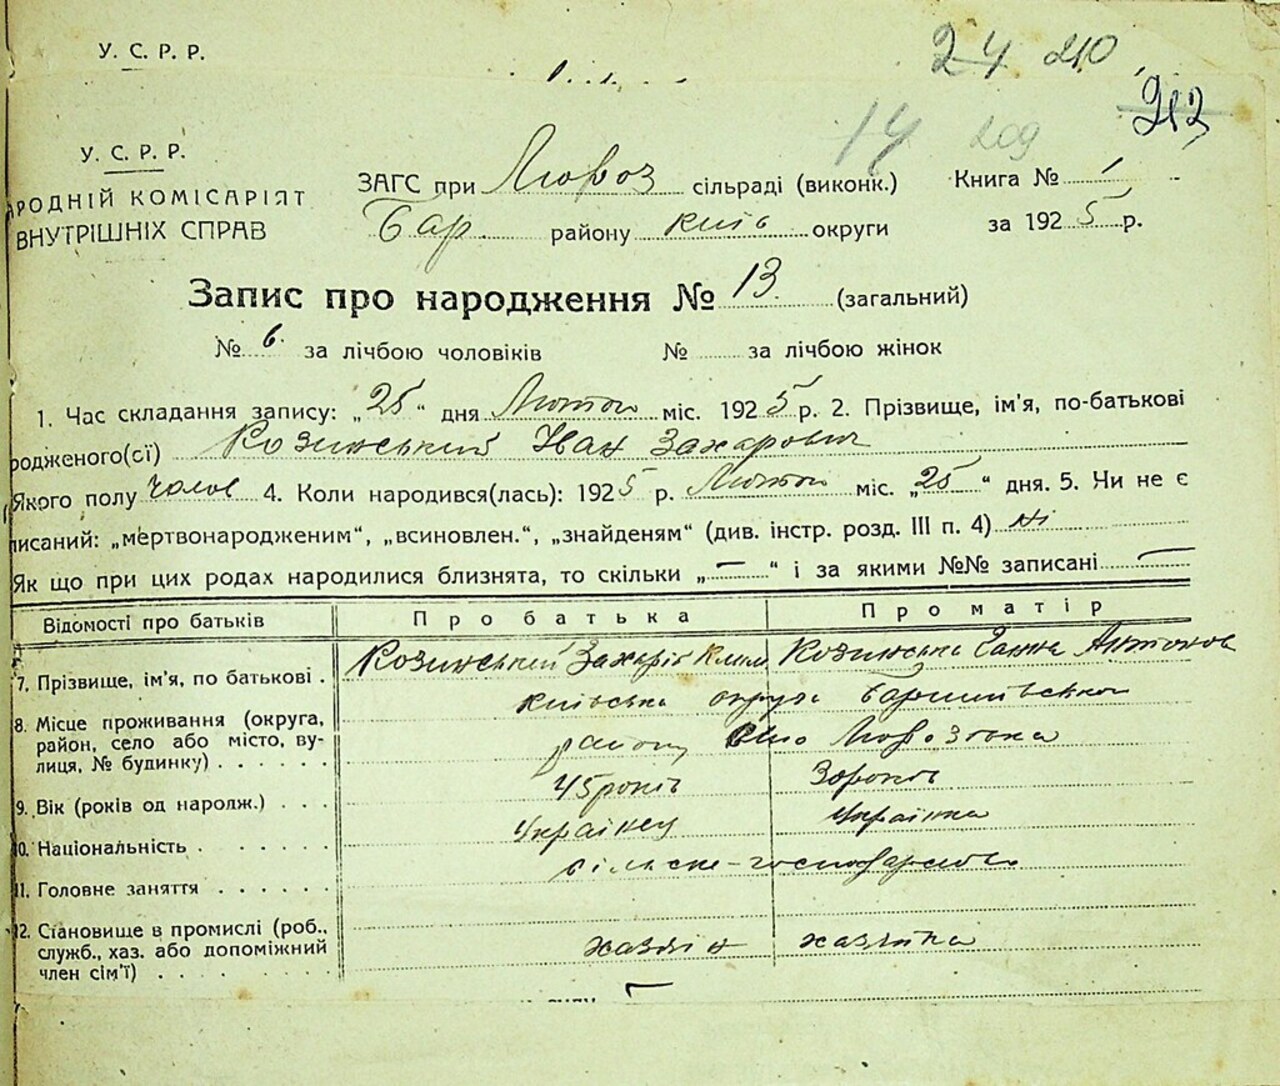 У. С. Р. Р.
24 210
212
14 209
У. С. Р. Р.
РОДНІЙ КОМІСАРІЯТ
ВНУТРІШНІХ СПРАВ
ЗАГС при Мороз сільраді (виконк.) Книга № 1
Бар. району Київ округи за 1925 р.
Запис про народження № 13 (загальний)
№ 6. за лічбою чоловіків № за лічбою жінок
1. Час складання запису: „25“ дня Лютого міс. 1925 р. 2. Прізвище, ім'я, по-батькові
родженого(сі) Козинський Іван Захарович
Якого полу Чолов 4. Коли народився(лась): 1925 р. Лютого міс. „25“ дня. 5. Чи не є
писаний: „мертвонародженим“, „всиновлен.“, „знайденям“ (див. інстр. розд. III п. 4) ні
Як що при цих родах народилися близнята, то скільки „—“ і за якими №№ записані —
Відомості про батьків Про батька Про матір
7. Прізвище, ім'я, по батькові . Козинський Захарій Клим Козинська Ганна Антонов
8. Місце проживання (округа, район, село або місто, вулиця, № будинку) . . . . . . Київська округа Баришівського
району село Морозівка
9. Вік (років од народж.) . . . 45 років 30 років
10. Національність . . . . . . . Українец Українка
11. Головне заняття . . . . . . сільске-господарство
12. Становище в промислі (роб., служб., хаз. або допоміжний член сім'ї) . . . . . . . . хазяін хазяйка